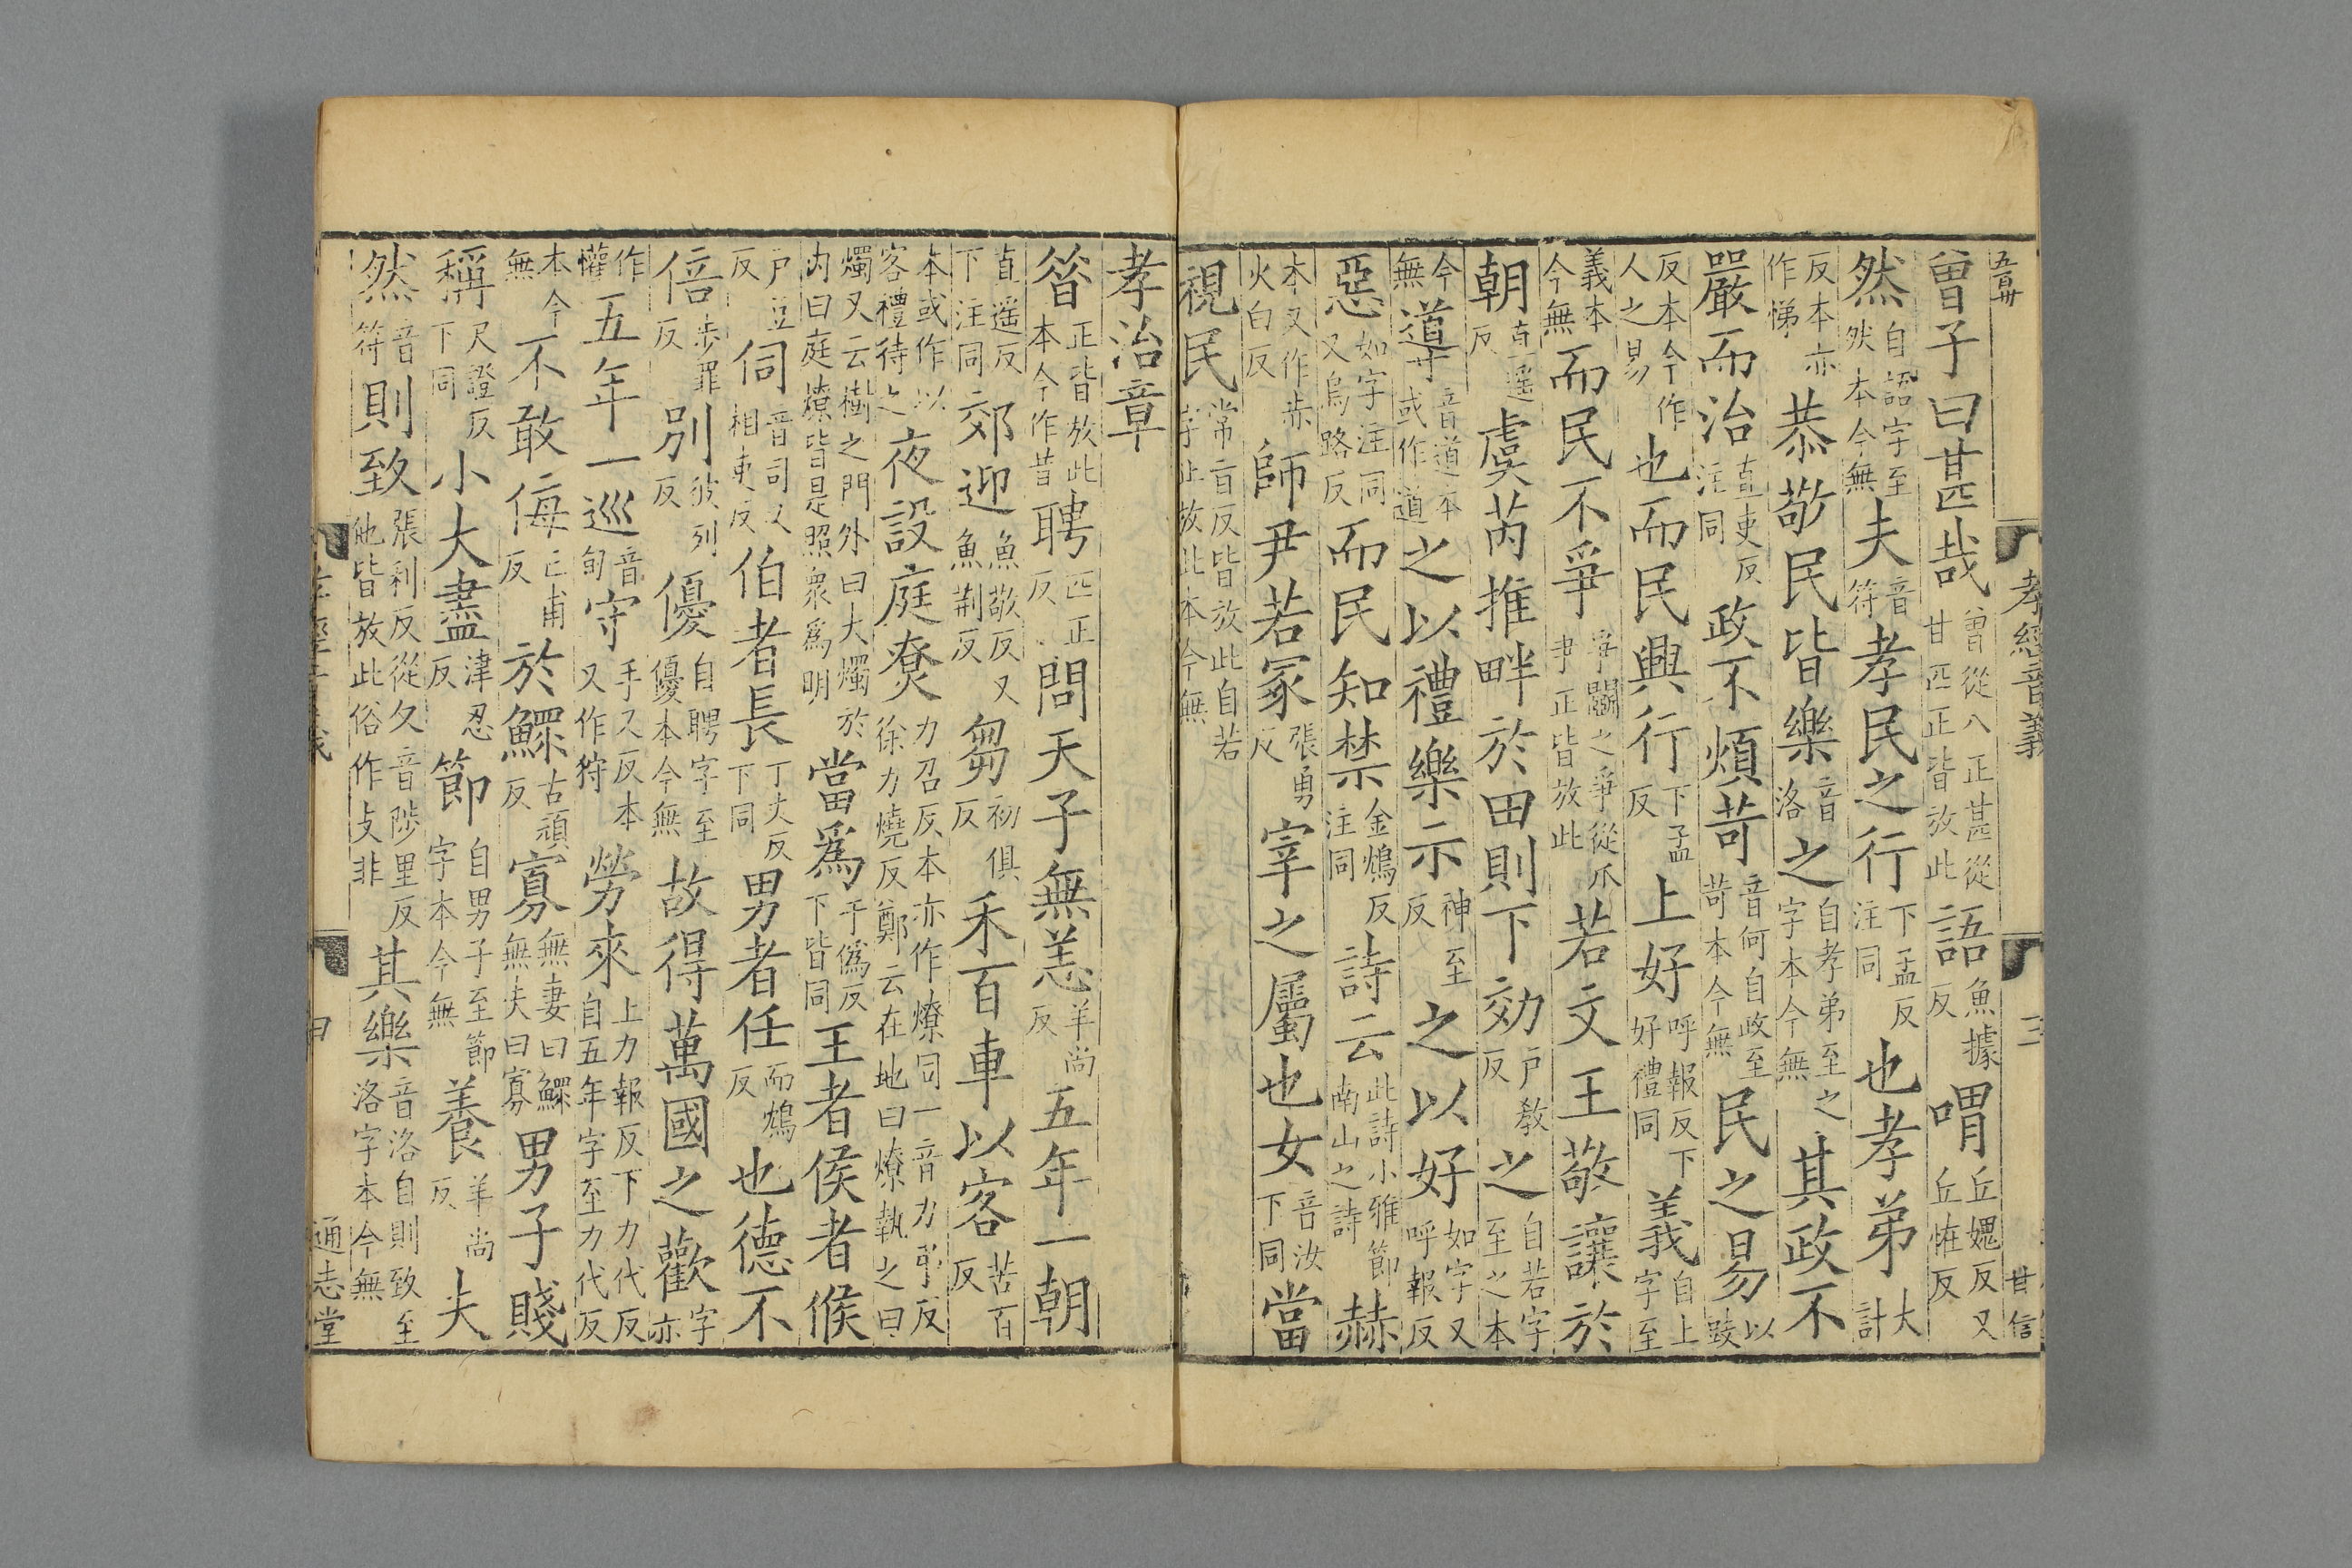 五百卅
孝經音義
三
甘信
曾子曰甚哉曾從八正甚從甘匹正皆放此語魚據反喟丘媿反又丘恠反
然自語字至然本今無夫音符孝民之行下孟反注同也孝弟大計
反本亦作悌恭敬民皆樂音洛之自孝弟至之字本今無其政不
嚴而治直吏反注同政不煩苛音何自政至苛本今無民之易以豉
反本今作人之易也而民興行下孟反上好呼報反下好禮同義自上字至
義本今無而民不爭爭鬬之爭從爪尹正皆放此若文王敬讓於
朝直遥反虞芮推畔於田則下効户教反之自若字至之本
今無道音道本或作道之以禮樂示神至反之以好如字又呼報反
惡如字注同又烏路反而民知禁金鴆反注同詩云此詩小雅節南山之詩赫
本又作赤火白反師尹若冢張勇反宰之屬也女音汝下同當
視民常旨反皆放此自若字止放此本今無
孝治章
昝正皆放此本今作昔聘匹正反問天子無恙羊尚反五年一朝
直遥反下注同郊迎魚敬反又魚荆反芻初俱反禾百車以客苦百反
本或作以客禮待之夜設庭尞力召反本亦作燎同一音力弔反徐力燒反鄭云在地曰燎執之曰
燭又云樹之門外曰大燭於内曰庭燎皆是照衆爲明當爲于僞反下皆同王者侯者候
户豆反伺音司又相吏反伯者長丁丈反下同男者任而鴆反也德不
倍步罪反別彼列反優自聘字至優本今無故得萬國之歡字亦
作懽五年一巡音旬守手又反本又作狩勞來上力報反下力代反自五年字至力代反
本今無不敢侮亡甫反於鰥古頑反寡無妻曰鰥無夫曰寡男子賤
稱尺證反下同小大盡津忍反節自男子至節字本今無養羊尚反夫
然音符則致張利反從夂音陟里反他皆放此俗作攴非其樂音洛自則致至洛字本今無
通志堂